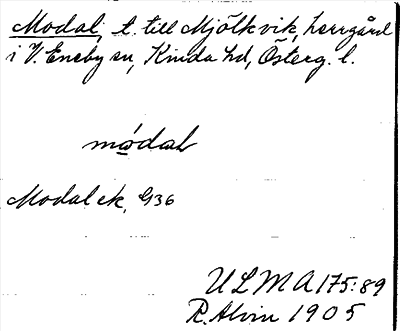 Modal, t. till Mjölkvik, herrgård
i V. Eneby sn, Kinda hd, Österg. l.
módal
Modal ek. G36
ULMA 175:89
R. Alvin 1905